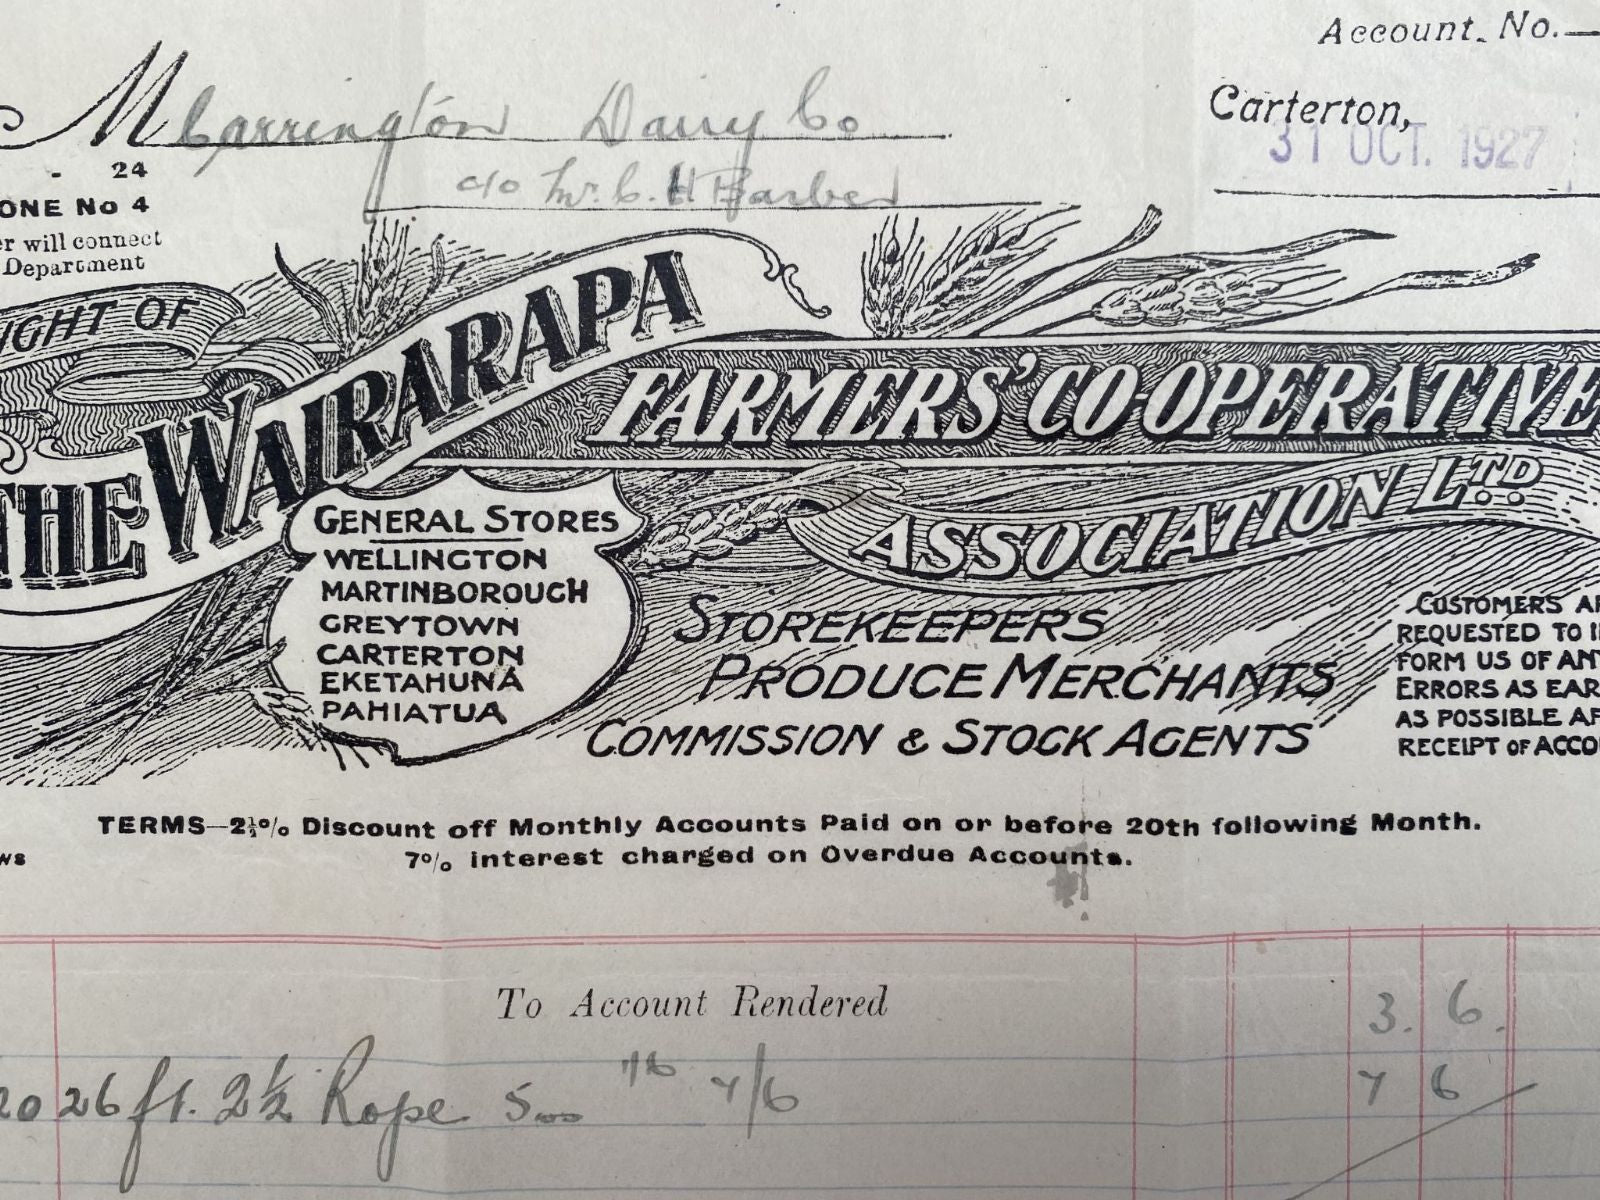 Account. No.
Carterton,
31 OCT. 1927
M Carrington Dairy Co
c/o Mr. C. H Barber
24
ONE No 4
er will connect
Department
IGHT OF
THE WAIRARAPA
FARMERS' CO-OPERATIVE
ASSOCIATION LTD
GENERAL STORES
WELLINGTON
MARTINBOROUGH
GREYTOWN
CARTERTON
EKETAHUNA
PAHIATUA
STOREKEEPERS
PRODUCE MERCHANTS
COMMISSION & STOCK AGENTS
CUSTOMERS AR
REQUESTED TO I
FORM US OF AN
ERRORS AS EAR
AS POSSIBLE AF
RECEIPT OF ACCO
TERMS—2½% Discount off Monthly Accounts Paid on or before 20th following Month.
ws
7% interest charged on Overdue Accounts.
To Account Rendered 3. 6.
20 26 ft. 2½ Rope 7/6 7 6